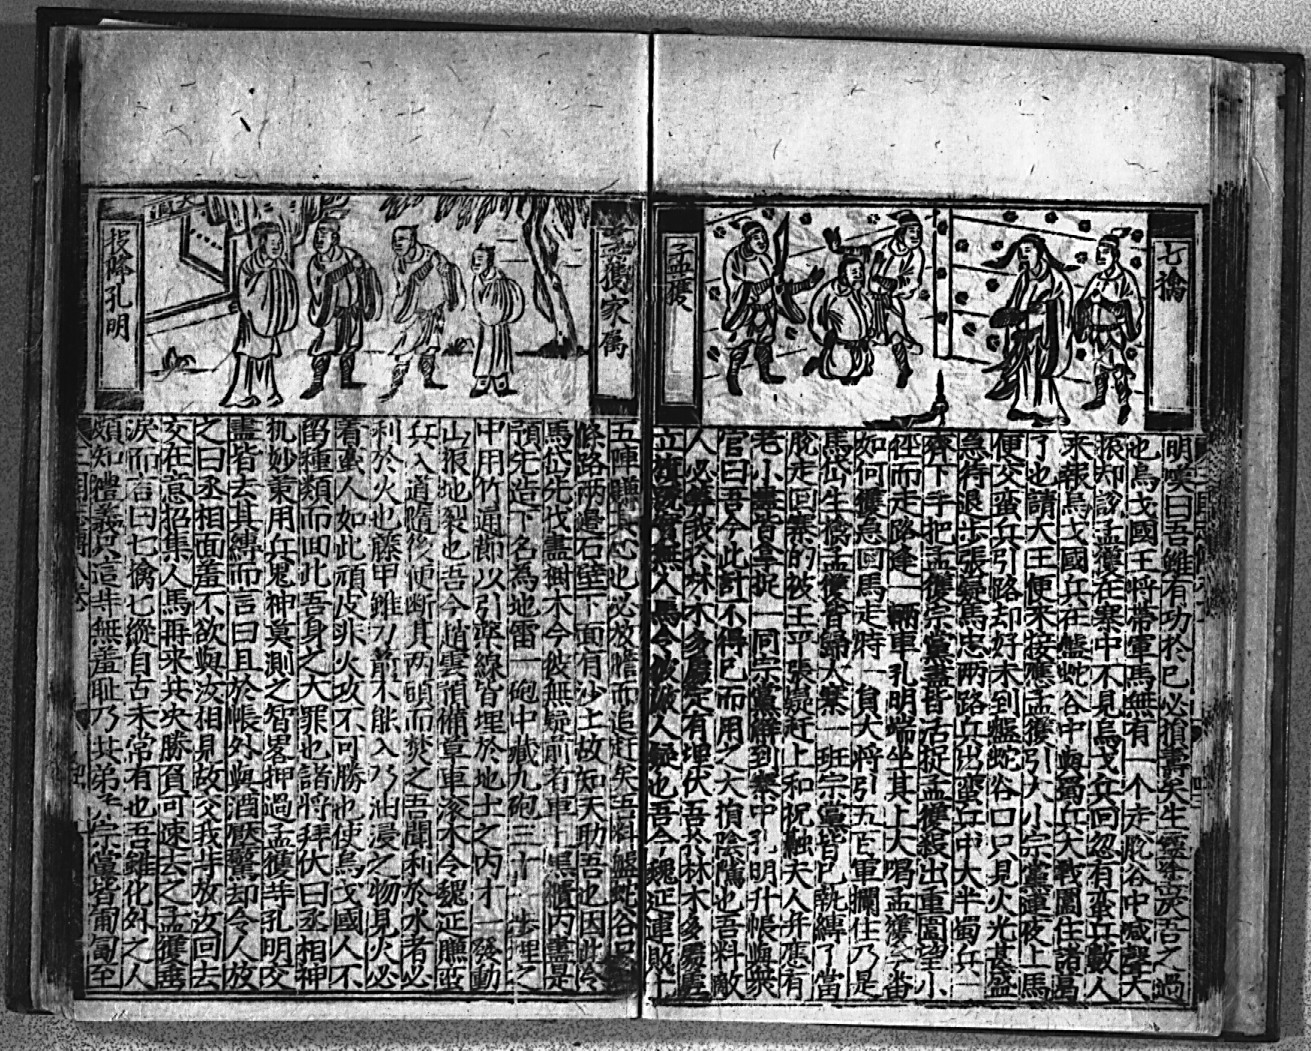 七擒
孟獲
明嘆曰吾雖有功於己必損壽矣生靈塗炭吾之過
也烏戈國王將帶軍馬無有一个走脫谷中喊聲大
振却說孟獲在寨中不見烏戈兵回忽有蛮兵數人
來報烏戈國兵在盤蛇谷中與蜀兵大戰圍住諸葛
了也請大王便來接應孟獲引大小宗黨連夜上馬
便交蛮兵引路却好未到盤蛇谷口只見火光甚盛
急待退步張嶷馬忠兩路兵出蛮兵中大半蜀兵一
齊下手把孟獲宗黨盡皆活捉孟獲殺出重圍望小
徑而走路逢一輛車孔明端坐其上大喝孟獲今番
如何獲急回馬走時一員大將引五百軍攔住乃是
馬岱生擒孟獲皆歸大寨一班宗黨皆已執縛了當
脫走回寨的被王平張嶷赶上和祝融夫人并應有
老小盡皆拿捉一同宗黨解到寨中孔明升帳與衆
官曰吾今此計不得已而用之大損陰隲也吾料敵
人必筭我於林木多處定有埋伏吾於林木多處虛
立旗號實無人馬令彼破人疑也吾令魏延連敗十
孟獲家属
投降孔明
五陣驕其心也必放膽而追赶矣吾料盤蛇谷只
條路兩邊石壁下面有沙土故知天助吾也因此令
馬岱先伐盡樹木令彼無疑前者車上黑櫃內盡是
預先造下名為地雷一砲中藏九砲三十步埋之
中用竹通節以引藥線皆埋於地土之內才一發動
山損地裂也吾令趙雲預備草車滚木令魏延賺敵
兵入道隨後便断其两頭而焚之吾聞利於水者必
利於火也藤甲雖刀箭不能入乃油浸之物見火必
着蛮人如此頑皮非火攻不可勝也使烏戈國人不
留種類而回此吾身之大罪也諸將拜伏曰丞相神
机妙策用兵鬼神莫測之智畧押過孟獲等孔明交
盡皆去其縛而言曰且於帳外與酒壓驚却令人放
之曰丞相面羞不欲與汝相見故交我等放汝回去
交在意招集人馬再來共决勝負可速去之孟獲垂
淚而言曰七擒七縱自古未常有也吾雖化外之人
頗知禮義只這等無羞耻乃共弟子宗黨皆匍匐至